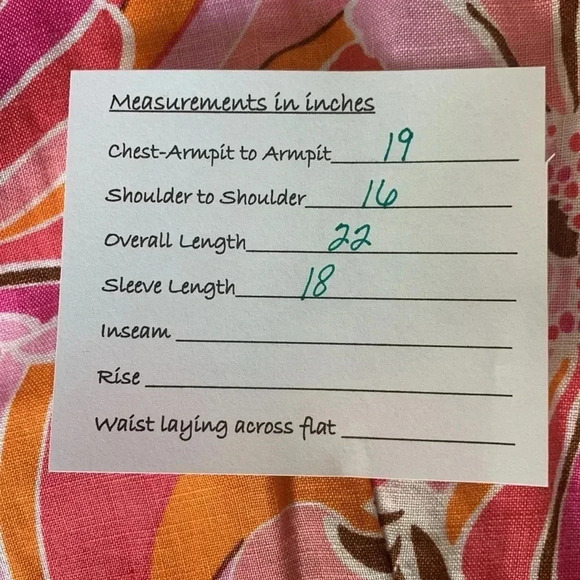 Measurements in inches
Chest-Armpit to Armpit 19
Shoulder to Shoulder 16
Overall Length 22
Sleeve Length 18
Inseam
Rise
Waist laying across flat